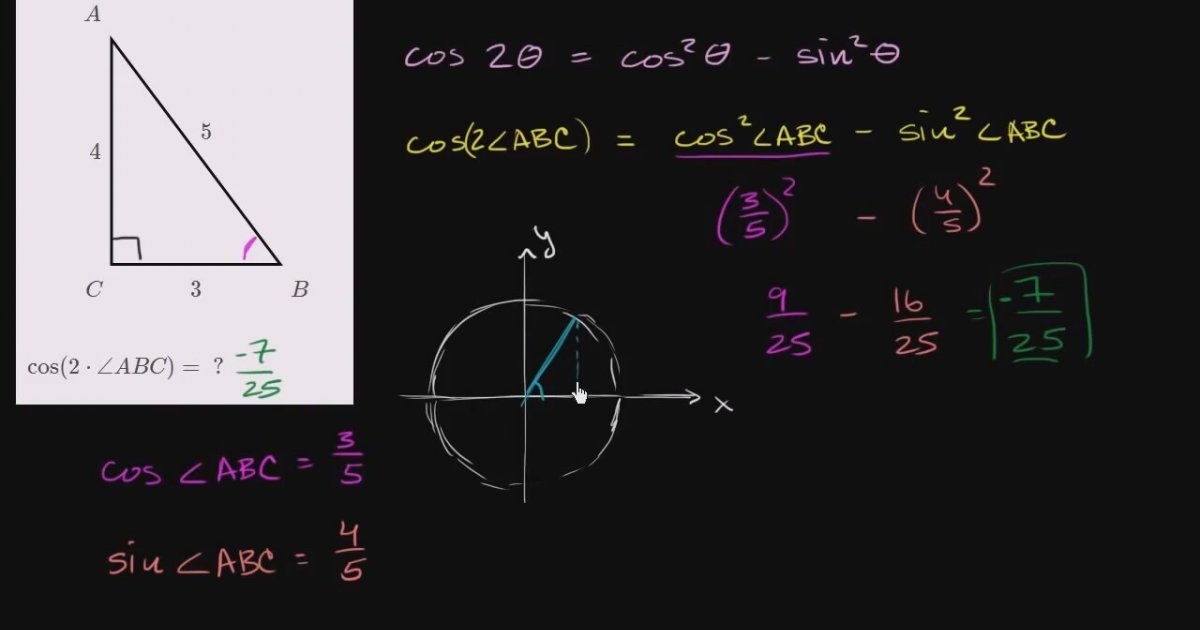 A
4
5
C
3
B
cos(2 · ∠ABC) = ? -7/25
cos 2θ = cos²θ - sin²θ
cos(2∠ABC) = cos²∠ABC - sin²∠ABC
(3/5)² - (4/5)²
9/25 - 16/25 = -7/25
y
x
cos ∠ABC = 3/5
sin ∠ABC = 4/5